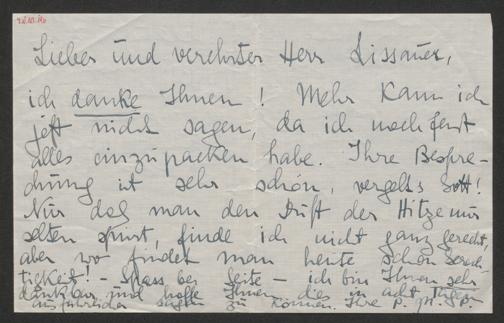 Lieber und verehrter Herr Lissauer,
ich danke Ihnen! Mehr kann ich
jetzt nicht sagen, da ich noch fast
alles einzupacken habe. Ihre Bespre-
chung ist sehr schön, vergelts Gott!
Nur daß man den Duft der Hitze nur
selten spürt, finde ich nicht ganz gerecht,
aber wo findet man heute schon Gerech-
tigkeit! – Spass bei Seite – ich bin Ihnen sehr
dankbar und hoffe Ihnen dies in acht Tagen
ausführlicher sagen zu können. Ihre P. M. P.